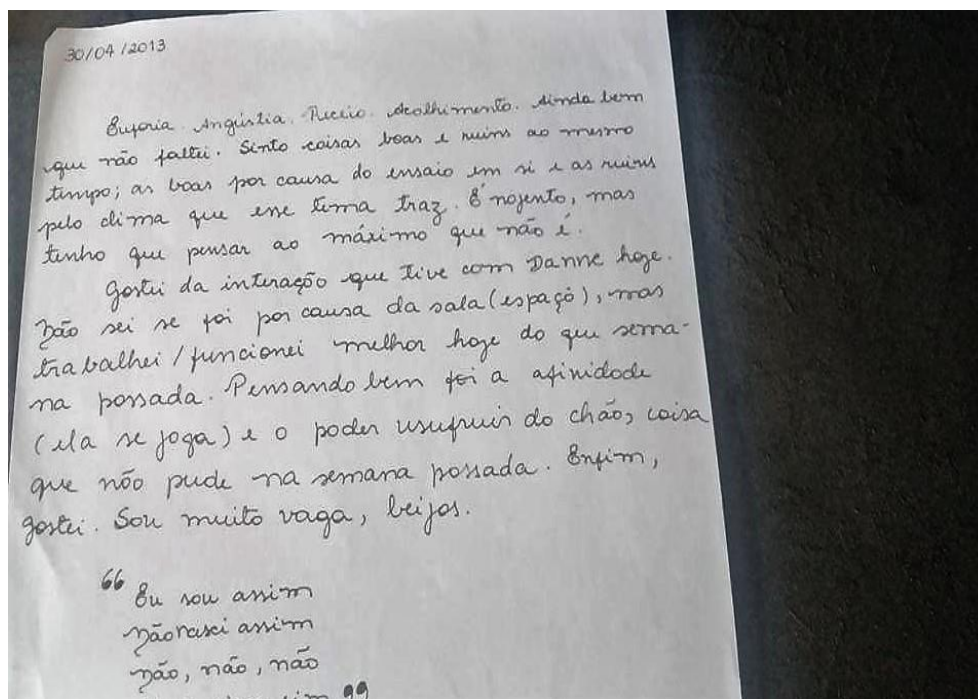 30/04/2013
Euforia. Angústia. Receio. Acolhimento. Ainda bem
que não faltei. Sinto coisas boas e ruins ao mesmo
tempo; as boas por causa do ensaio em si e as ruins
pelo clima que esse tema traz. É nojento, mas
tenho que pensar ao máximo que não é.
Gostei da interação que tive com Danne hoje.
Não sei se foi por causa da sala (espaço), mas
trabalhei/funcionei melhor hoje do que sema-
na passada. Pensando bem foi a afinidade
(ela se joga) e o poder usufruir do chão, coisa
que não pude na semana passada. Enfim,
gostei. Sou muito vaga, beijos.
"Eu sou assim
Não nasci assim
Não, não, não
"